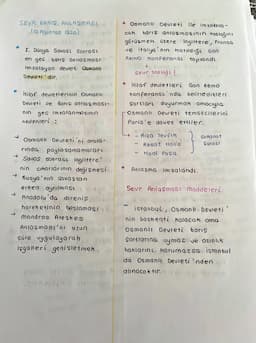 SEVR ANLAŞMASI
(10 Ağustos 1920)
* I. Dünya Savaşı sonrası
en geç barış anlaşması
imzalayan devlet Osmanlı
Devleti'dir.
* İtilaf devletlerinin Osmanlı
Devleti ile barış antlaşması-
nın geç imzalanmasının
nedenleri :
→ Osmanlı Devleti'ni arala-
rında paylaşamamaları
→ Savaş sonrası İngiltere'
nin çıkarlarının değişmesi
→ Rusya'nın savaştan
erken ayrılması
→ Anadolu'da direniş
hareketinin başlaması
→ Mondros Ateşkes
Anlaşması'nı uzun
süre uygulayarak
işgalleri genişletmek
* Osmanlı Devleti ile imzalana-
cak barış antlaşmasının taslağını
görüşmek üzere İngiltere, Fransa
ve İtalya'nın katıldığı San
Remo Konferansı toplandı.
* İtilaf devletleri San Remo
Konferansı'nda belirledikleri
şartları duyurmak amacıyla
Osmanlı Devleti temsilcilerini
Paris'e davet ettiler.
→ Rıza Tevfik
→ Reşat Halis
→ Hadi Paşa
Saltanat
Şurası
* Anlaşma imzalandı.
Sevr Anlaşması Maddeleri
- İstanbul, Osmanlı Devleti'
nin başkenti kalacak ama
Osmanlı Devleti barış
şartlarına uymaz ve azınlık
haklarını korumazsa İstanbul
da Osmanlı Devleti'nden
alınacaktır.